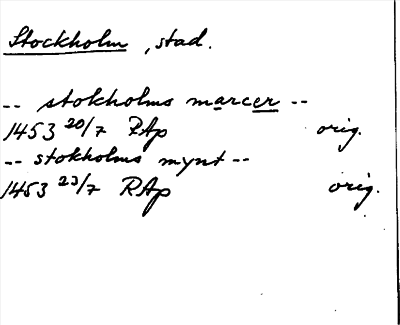 Stockholm, stad.
-- stokholms marcer --
1453 20/7 RAp orig.
-- stokholms mynt --
1453 23/7 RAp orig.